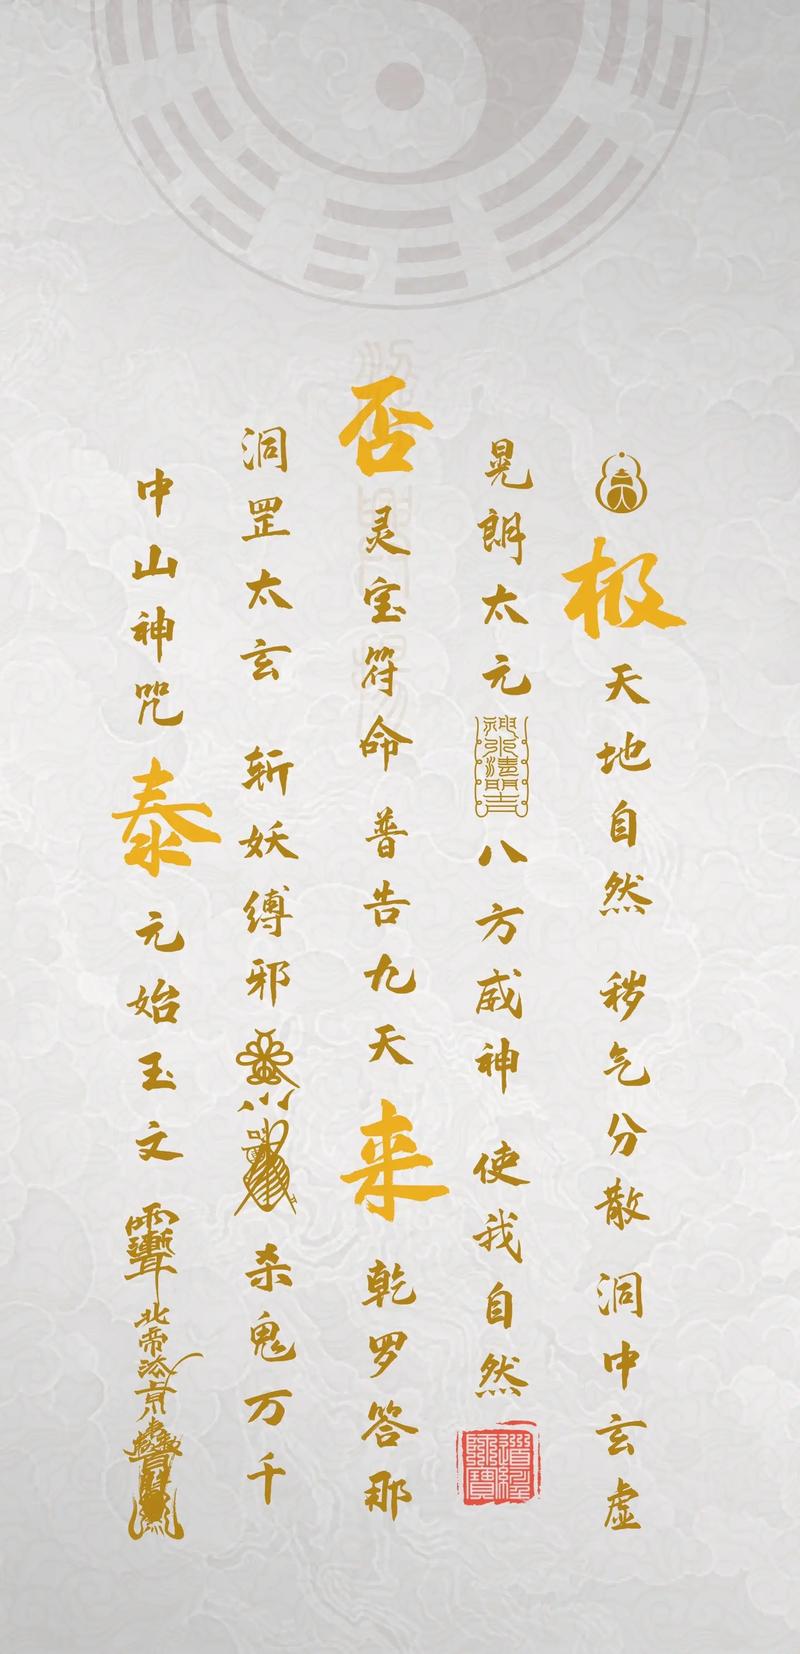 极天地自然 秽气分散 洞中玄虚
晃朗太元 八方威神 使我自然
否灵宝符命 普告九天来乾罗答那
洞罡太玄 斩妖缚邪 杀鬼万千
中山神咒泰元始玉文